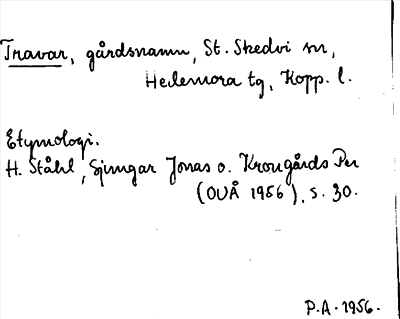 Travar, gårdsnamn, St. Skedvi sn,
Hedemora tg, Kopp. l.
Etymologi.
H. Ståhl, Sjungar Jonas o. Krongårds Per
(OUÅ 1956), s. 30.
P.A. 1956.